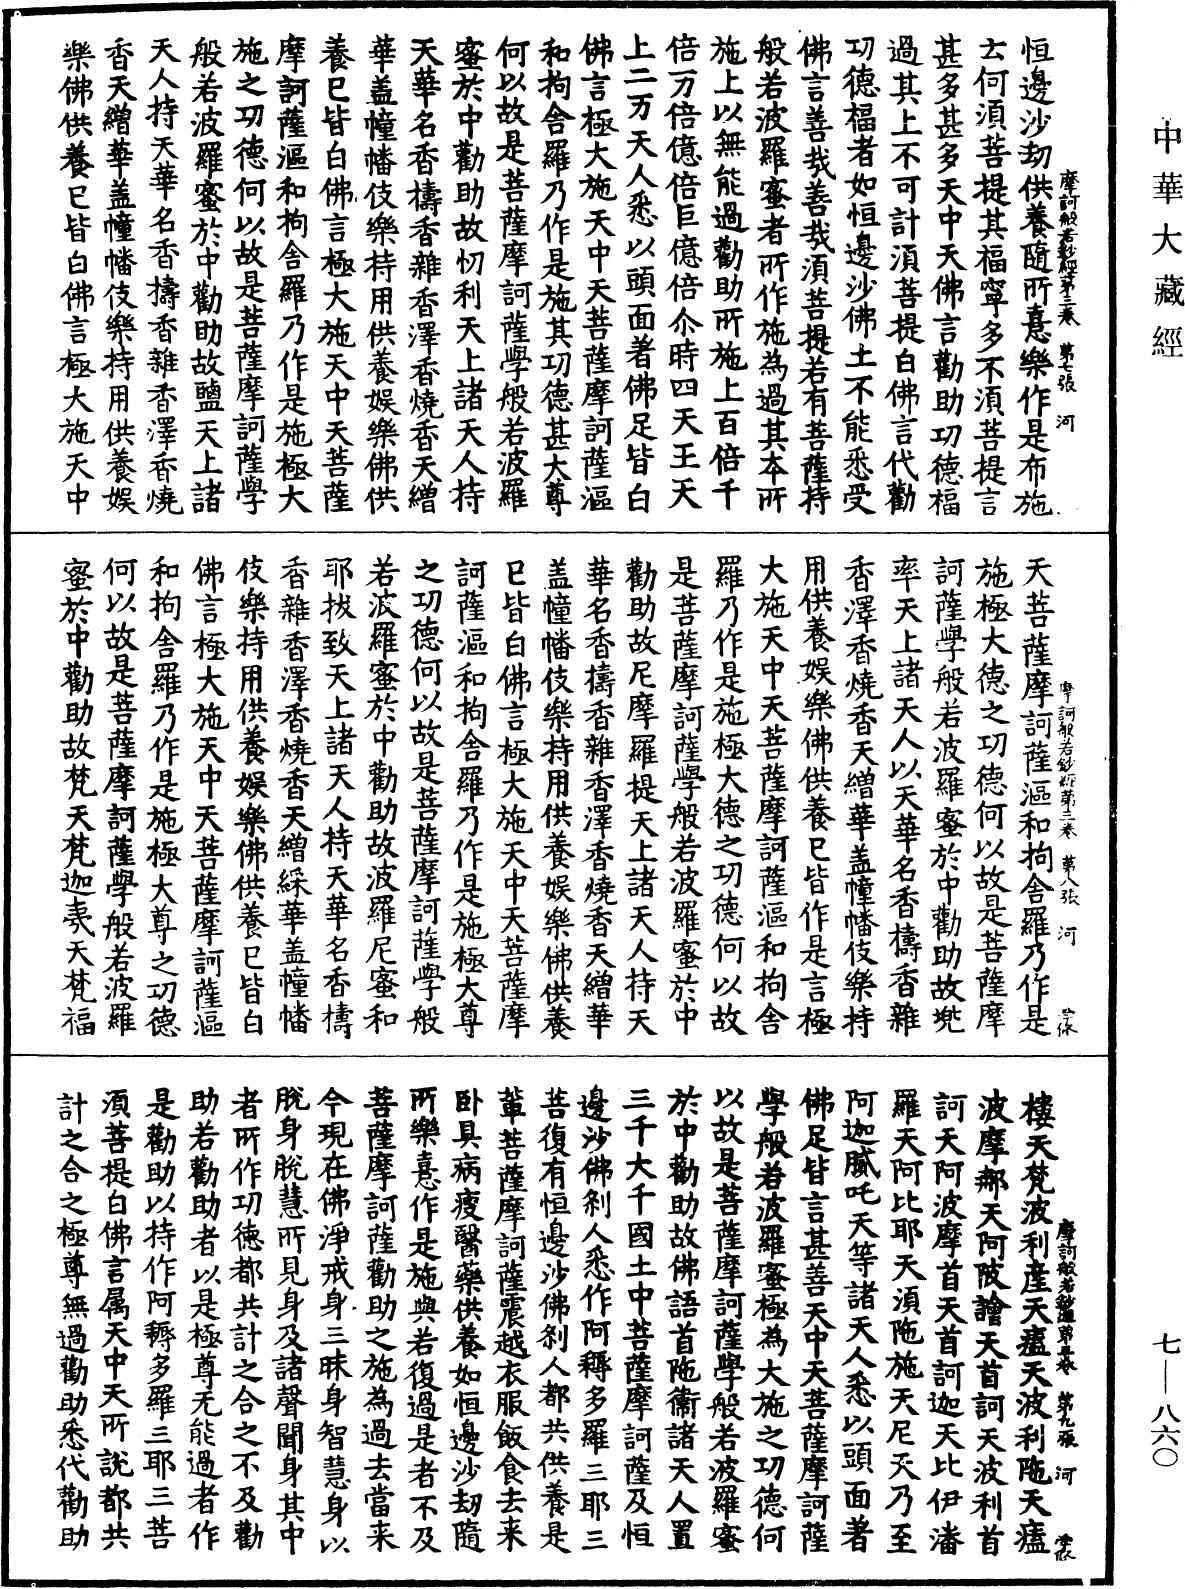 中華大藏經
七—八六〇
摩訶般若鈔經第三卷 第七張 河
恒邊沙劫供養隨所意樂作是布施
云何須菩提其福寧多不須菩提言
甚多甚多天中天佛言勸助功德福
過其上不可計須菩提白佛言代勸
功德福者如恒邊沙佛土不能悉受
佛言善哉善哉須菩提若有菩薩持
般若波羅蜜者所作施為過其本所
施上以無能過勸助所施上百倍千
倍万倍億倍巨億倍尒時四天王天
上二万天人悉以頭面著佛足皆白
佛言極大施天中天菩薩摩訶薩漚
和拘舍羅乃作是施其功德甚大尊
何以故是菩薩摩訶薩學般若波羅
蜜於中勸助故忉利天上諸天人持
天華名香擣香雜香澤香燒香天繒
華盖幢幡伎樂持用供養娛樂佛供
養已皆白佛言極大施天中天菩薩
摩訶薩漚和拘舍羅乃作是施極大
施之功德何以故是菩薩摩訶薩學
般若波羅蜜於中勸助故鹽天上諸
天人持天華名香擣香雜香澤香燒
香天繒華盖幢幡伎樂持用供養娛
樂佛供養已皆白佛言極大施天中
摩訶般若鈔經第三卷 第八張 河
天菩薩摩訶薩漚和拘舍羅乃作是
施極大德之功德何以故是菩薩摩
訶薩學般若波羅蜜於中勸助故兜
率天上諸天人以天華名香擣香雜
香澤香燒香天繒華盖幢幡伎樂持
用供養娛樂佛供養已皆作是言極
大施天中天菩薩摩訶薩漚和拘舍
羅乃作是施極大德之功德何以故
是菩薩摩訶薩學般若波羅蜜於中
勸助故尼摩羅提天上諸天人持天
華名香擣香雜香澤香燒香天繒華
盖幢幡伎樂持用供養娛樂佛供養
已皆白佛言極大施天中天菩薩摩
訶薩漚和拘舍羅乃作是施極大尊
之功德何以故是菩薩摩訶薩學般
若波羅蜜於中勸助故波羅尼蜜和
耶拔致天上諸天人持天華名香擣
香雜香澤香燒香天繒綵華盖幢幡
伎樂持用供養娛樂佛供養已皆白
佛言極大施天中天菩薩摩訶薩漚
和拘舍羅乃作是施極大尊之功德
何以故是菩薩摩訶薩學般若波羅
蜜於中勸助故梵天梵迦夷天梵福
摩訶般若鈔經第三卷 第九張 河
樓天梵波利產天盧天波利陁天盧
波摩那天阿陂譮天首訶天波利首
訶天阿波摩首天首訶迦天比伊潘
羅天阿比耶天須陁施天尼天乃至
阿迦膩吒天等諸天人悉以頭面著
佛足皆言甚善天中天菩薩摩訶薩
學般若波羅蜜極為大施之功德何
以故是菩薩摩訶薩學般若波羅蜜
於中勸助故佛語首陁衞諸天人置
三千大千國土中菩薩摩訶薩及恒
邊沙佛刹人悉作阿耨多羅三耶三
菩復有恒邊沙佛刹人都共供養是
輩菩薩摩訶薩震越衣服飯食去來
卧具病瘦醫藥供養如恒邊沙劫隨
所樂意作是施與若復過是者不及
菩薩摩訶薩勸助之施為過去當來
今現在佛淨戒身三昧身智慧身以
脫身脫慧所見身及諸聲聞身其中
者所作功德都共計之合之不及勸
助若勸助者以是極尊无能過者作
是勸助以持作阿耨多羅三耶三菩
須菩提白佛言属天中天所說都共
計之合之極尊無過勸助悉代勸助